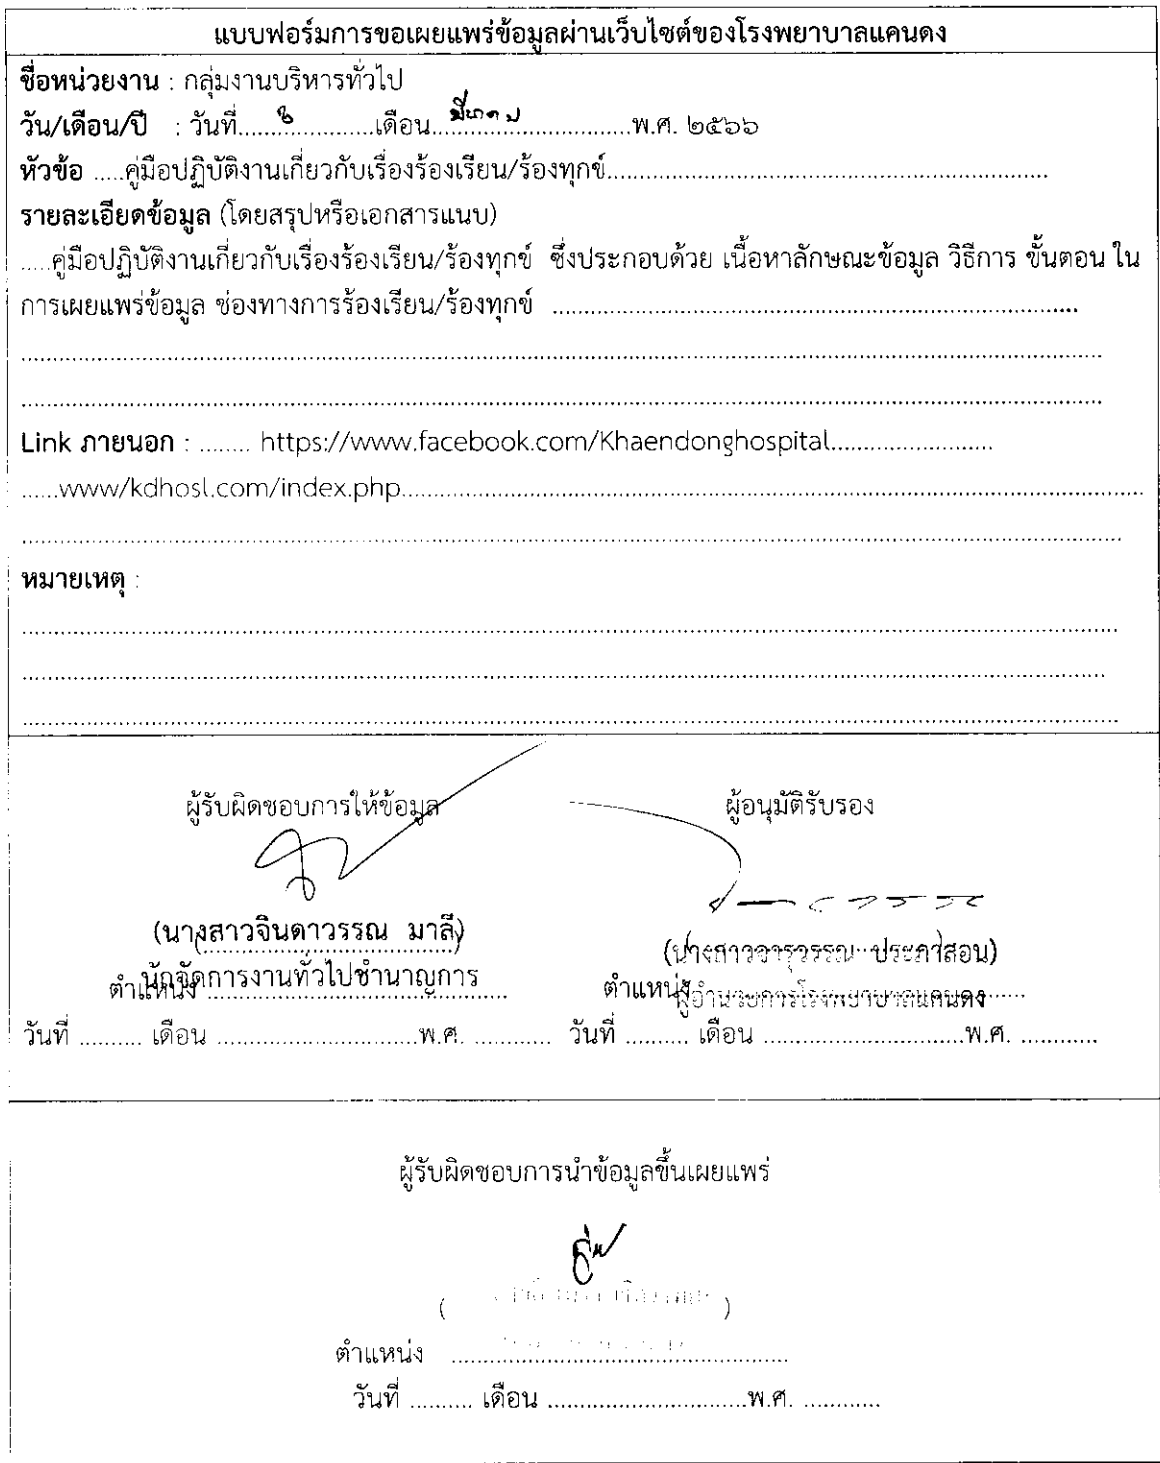 แบบฟอร์มการขอเผยแพร่ข้อมูลผ่านเว็บไซต์ของโรงพยาบาลแคนดง
ชื่อหน่วยงาน : กลุ่มงานบริหารทั่วไป
วัน/เดือน/ปี : วันที่.......๖............เดือน...มีนาคม..............พ.ศ. ๒๕๖๖
หัวข้อ .....คู่มือปฏิบัติงานเกี่ยวกับเรื่องร้องเรียน/ร้องทุกข์..............................
รายละเอียดข้อมูล (โดยสรุปหรือเอกสารแนบ)
.....คู่มือปฏิบัติงานเกี่ยวกับเรื่องร้องเรียน/ร้องทุกข์ ซึ่งประกอบด้วย เนื้อหาลักษณะข้อมูล วิธีการ ขั้นตอน ใน
การเผยแพร่ข้อมูล ช่องทางการร้องเรียน/ร้องทุกข์ ..............................
Link ภายนอก : ........ https://www.facebook.com/Khaendonghospital.......................
......www/kdhosl.com/index.php..............................
หมายเหตุ :
ผู้รับผิดชอบการให้ข้อมูล ผู้อนุมัติรับรอง
(นางสาวจินดาวรรณ มาลี) (นางสาวจารุวรรณ ประภาสอน)
ตำแหน่ง นักจัดการงานทั่วไปชำนาญการ ตำแหน่ง ผู้อำนวยการโรงพยาบาลแคนดง
วันที่ .......... เดือน ..............................พ.ศ. ............ วันที่ .......... เดือน ..............................พ.ศ. ............
ผู้รับผิดชอบการนำข้อมูลขึ้นเผยแพร่
( )
ตำแหน่ง ..............................
วันที่ .......... เดือน ..............................พ.ศ. ............